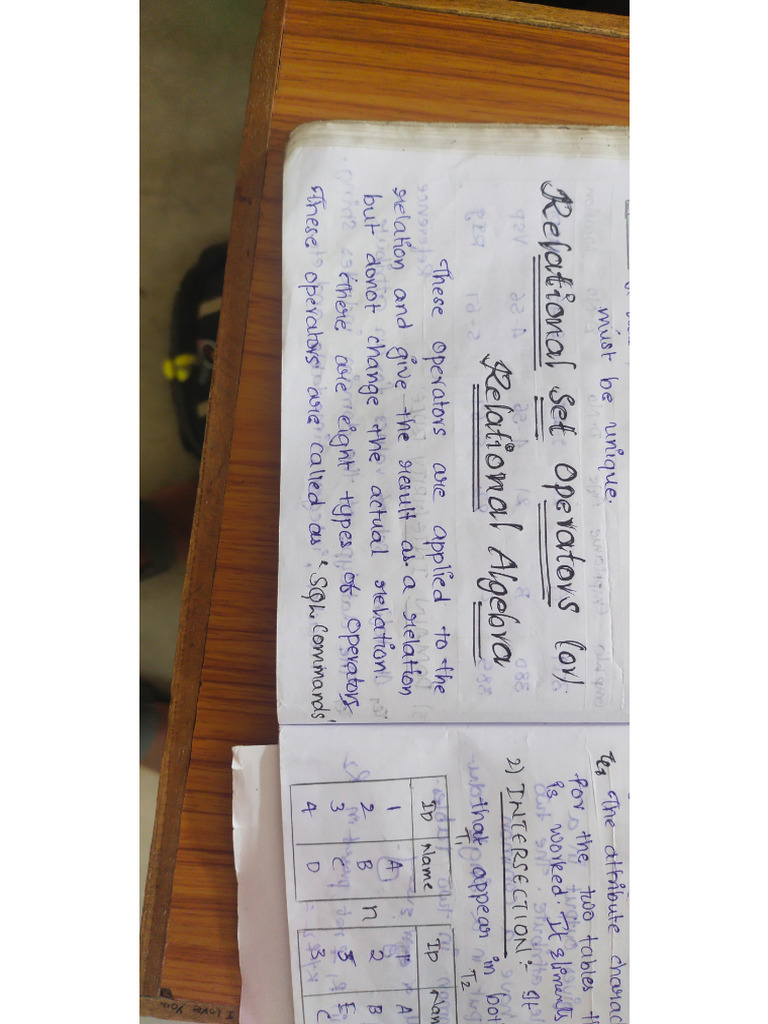 must be unique.
Relational Set Operators (or)
Relational Algebra
These operators are applied to the
relation and give the result as a relation
but donot change the actual relation
there are eight types of operators
These operators are called as "SQL Commands"
The attribute charac
for the two tables t
is worked. It elements
2) INTERSECTION:- It
that appear in bot
T1 T2
ID Name n ID Nam
1 A 1 A
2 B 2 B
3 C 3
4 D 3 C
I LOVE YOU